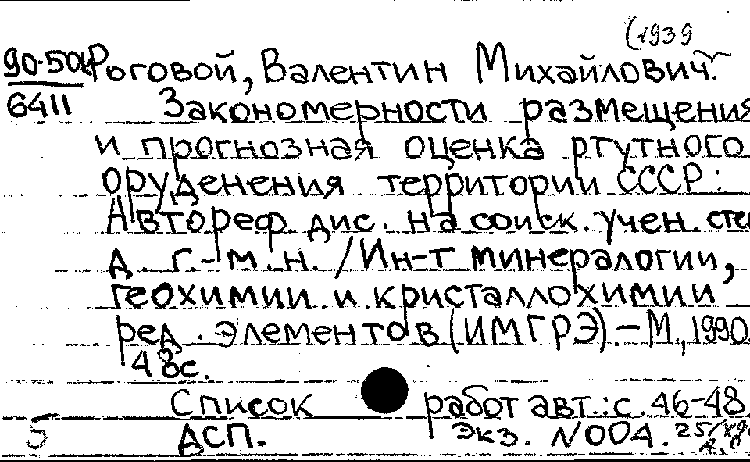 (1939
90-50к Роговой, Валентин Михайлович.
6411 Закономерности размещения
и прогнозная оценка ртутного
оруденения территории СССР:
Автореф. дис. на соиск. учен. степ
д. г.-м. н. / Ин-т минералогии,
геохимии и кристаллохимии
ред. элементов (ИМГРЭ).-М., 1990.
48с.
Список работ авт.: с. 46-48
5 ДСП. Экз. N004.